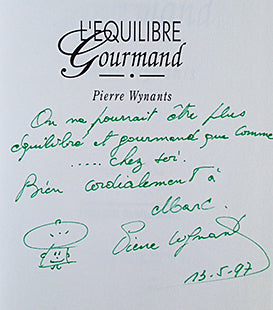 L'EQUILIBRE
Gourmand
Pierre Wynants
On ne pourrait être plus
équilibré et gourmand que comme
..... chez soi.
Bien cordialement à
Marc.
Pierre Wynants
13-5-97